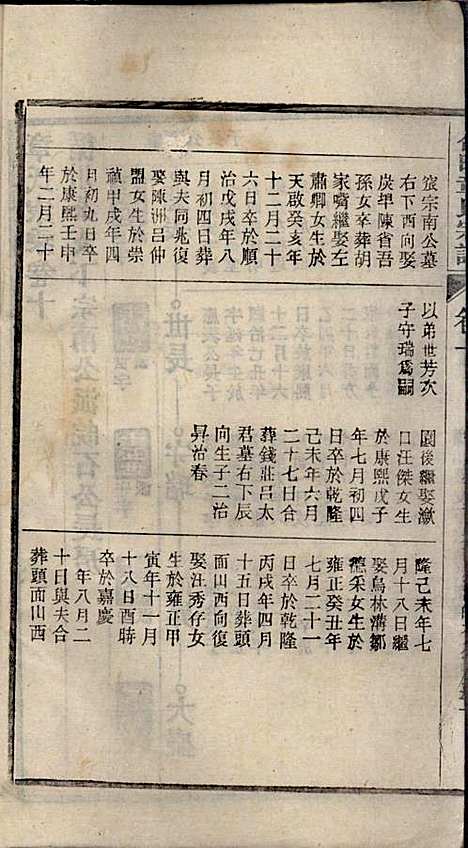 窆宗南公墓
右下酉向娶
炭垾陳省吾
孫女卒葬胡
家嘴繼娶左
肅卿女生於
天啟癸亥年
十二月二十
六日卒於順
治戊戌年八
月初四日葬
與夫同兆復
娶陳洲呂仲
盟女生於崇
禎甲戌年四
月初九日卒
於康熙壬申
年二月二十
以弟世芳次
子守瑞爲嗣
園後繼娶漵
口汪傑女生
於康熙戊子
年七月初四
日卒於乾隆
己未年六月
二十七日合
葬錢莊呂太
君墓右下辰
向生子二治
昇治春
隆己未年七
月十八日繼
娶烏林溝鄒
德采女生於
雍正癸丑年
七月二十一
日卒於乾隆
丙戌年四月
十五日葬頭
面山西向復
娶汪秀存女
生於雍正甲
寅年十一月
十八日酉時
卒於嘉慶
年八月二
十日與夫合
葬頭面山酉